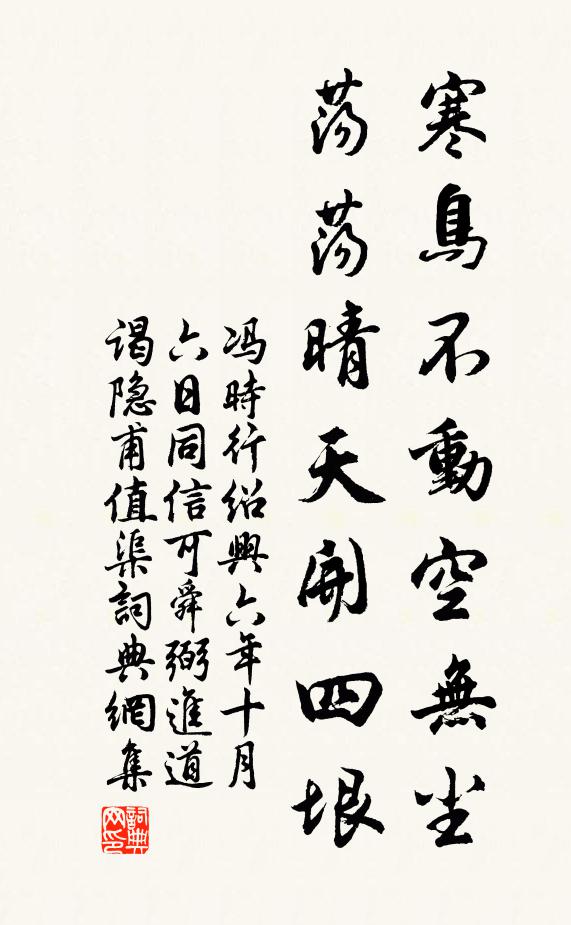 寒鳥不動空無尘
荡荡晴天開四垠
冯時行绍興六年十月
六日同信可舜弼進道
谒隐甫值渠詞典網集
詞典网印